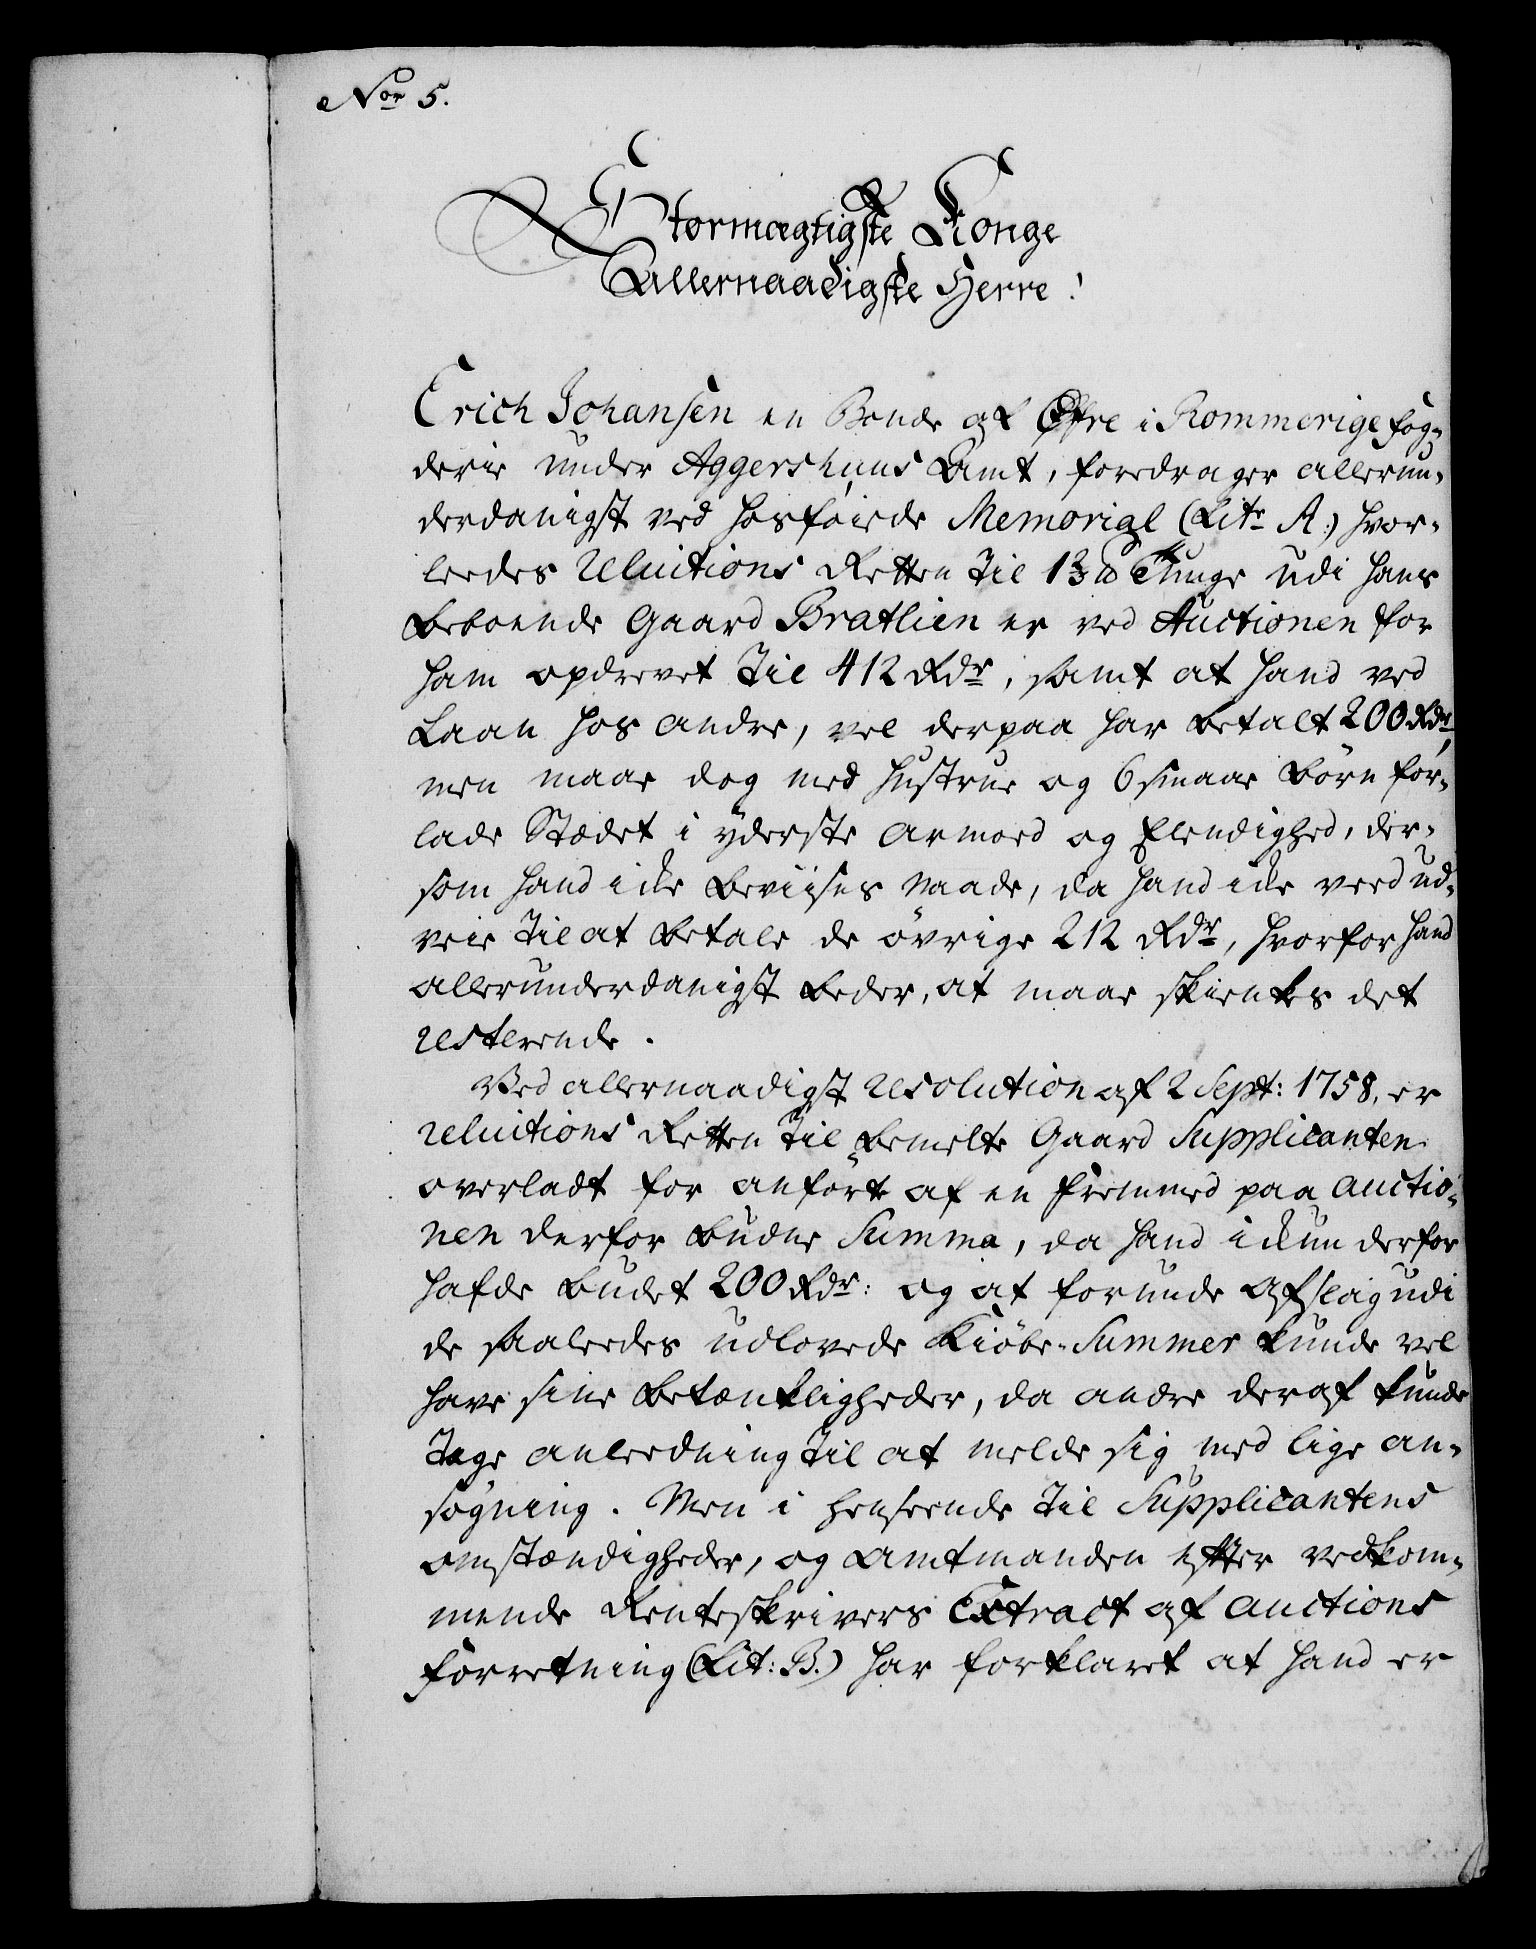 No͞r 5.
Stormægtigste Konge
Allernaadigste Herre!
Erich Johansen en Bonde af Øfre i Rommerige fog-
derie under Aggershuus Amt, foredrager allerun-
derdanigst ved hosføiede Memorial (Litr A:) hvor-
leedes reluitions Retten til 1⅔ ℔ Tunge udi hans
beboende Gaard Bratlien er ved Auctionen for
ham opdrevet til 412 Rdr, samt at hand ved
Laan hos andre, vel derpaa har betalt 200 Rdr,
men maae dog med Hustrue og 6 smaae Børn for-
lade Stædet i yderste Armoed og Elendighed, der-
som hand icke beviises Naade, da hand icke veed ud-
veie til at betale de övrige 212 Rdr, hvorfor hand
allerunderdanigst beder, at maae skienkes det
resterende.
Ved allernaadigst resolution af 2 Sept: 1758, er
reluitions Retten til bemelte Gaard Supplicanten
overladt for anförte af en fremmed paa auctio-
nen derfor budne Summa, da hand ickun derfor
hafde budet 200 Rdr: og at forunde Afslag udi
de saaledes udlovede Kiöbe-Summer kunde vel
have sine betænkligheder, da andre deraf kunde
tage anleedning til at melde sig med lige an-
søgning. Men i henseende til Supplicantens
omstændigheder, og Amtmanden efter vedkom-
mende Renteskrivers Extract af auctions
forretning (Lit: B.) har forklaret at hand er